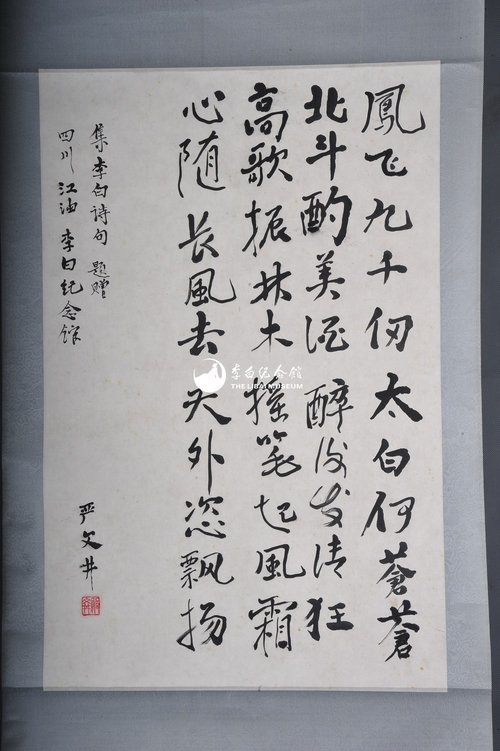 鳳飞九千仞太白何蒼蒼
北斗酌美酒醉後发清狂
高歌振林木摇笔起風霜
心随长風去天外恣飘扬
集李白诗句题赠
四川江油李白纪念馆
严文井
李白纪念馆
THE LIBAI MUSEUM